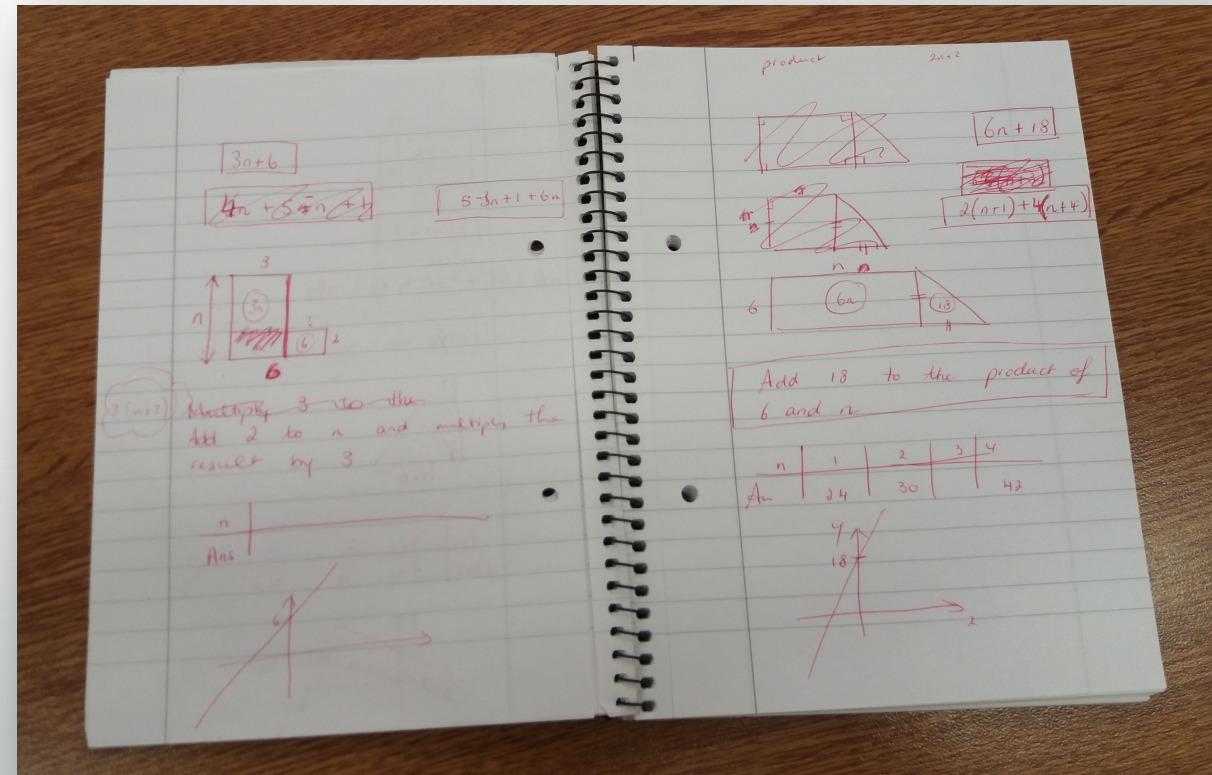 3n+6
5-3n+1+6n
3
n
3n
6
2
6
3(n+2)
Multiply 3 to the
Add 2 to n and multiply the
result by 3
n
Ans
6
product
2n+2
6n+18
2(n+1)+4(n+4)
n
6
6n
18
Add 18 to the product of
6 and n
n 1 2 3 4
An 24 30 42
y
18
x